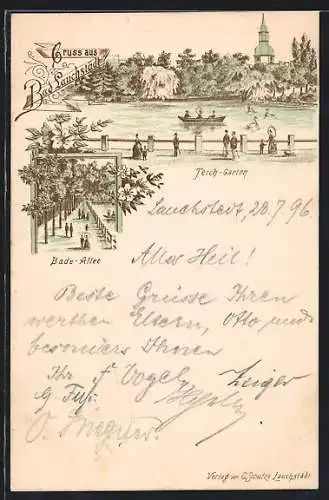 Gruss aus
Bad Lauchstädt
Teich-Garten
Bade-Allee
Lauchstedt, 28.7.96.
Alles Heil!
Beste Grüsse Ihren
werthen Eltern, Otto und
besonders Ihnen
Ihr F Vogel, Zeiger
G.
O.
Verlag von G. Lauchstädt